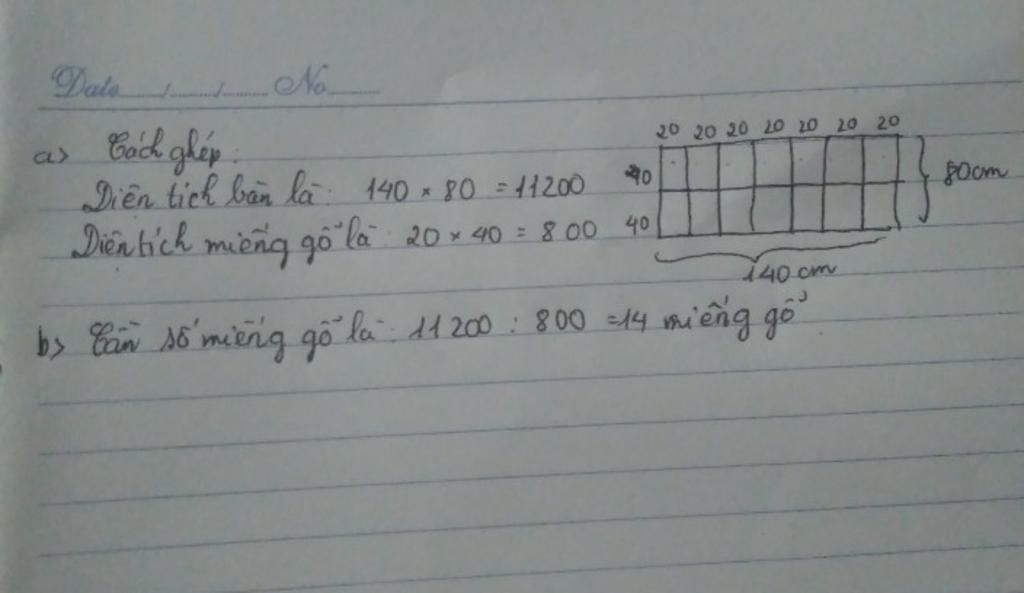 Date ...../...../..... No .....
20 20 20 20 20 20 20
a> Cách ghép:
40
80cm
Diện tích bàn là: 140 × 80 = 11200
Diện tích miếng gỗ là: 20 × 40 = 800
40
140 cm
b> Cần số miếng gỗ là: 11200 : 800 = 14 miếng gỗ